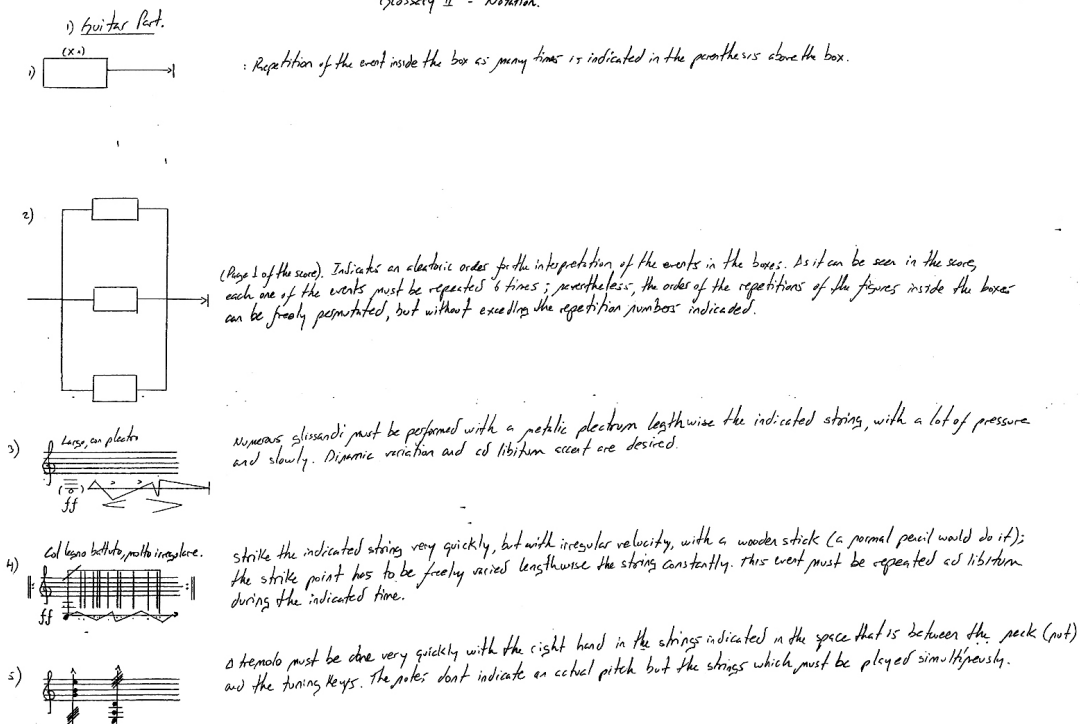 Glossary II - Notation.
1) Guitar Part.
(X n)
1)
: Repetition of the event inside the box as many times is indicated in the perenthesis above the box.
2)
(Page 1 of the score). Indicates an aleatoric order for the interpretation of the events in the boxes. As it can be seen in the score,
each one of the events must be repeated 6 times; nevertheless, the order of the repetitions of the figures inside the boxes
can be freely permutated, but without exceding the repetition numbers indicaded.
3)
Largo, con plectro
ff
Numerous glissandi must be performed with a metalic plectrum legthwise the indicated string, with a lot of pressure
and slowly. Dinamic variation and ad libitum accent are desired.
4)
Col legno battuto, molto irregolare.
ff
strike the indicated string very quickly, but with irregular velocity, with a wooden stick (a normal pencil would do it);
the strike point has to be freely varied lengthwise the string constantly. This event must be repeated ad libitum
during the indicated time.
5)
A tremolo must be done very quickly with the right hand in the strings indicated in the space that is between the neck (nut)
and the tuning keys. The notes dont indicate an actual pitch but the strings which must be played simultineusly.